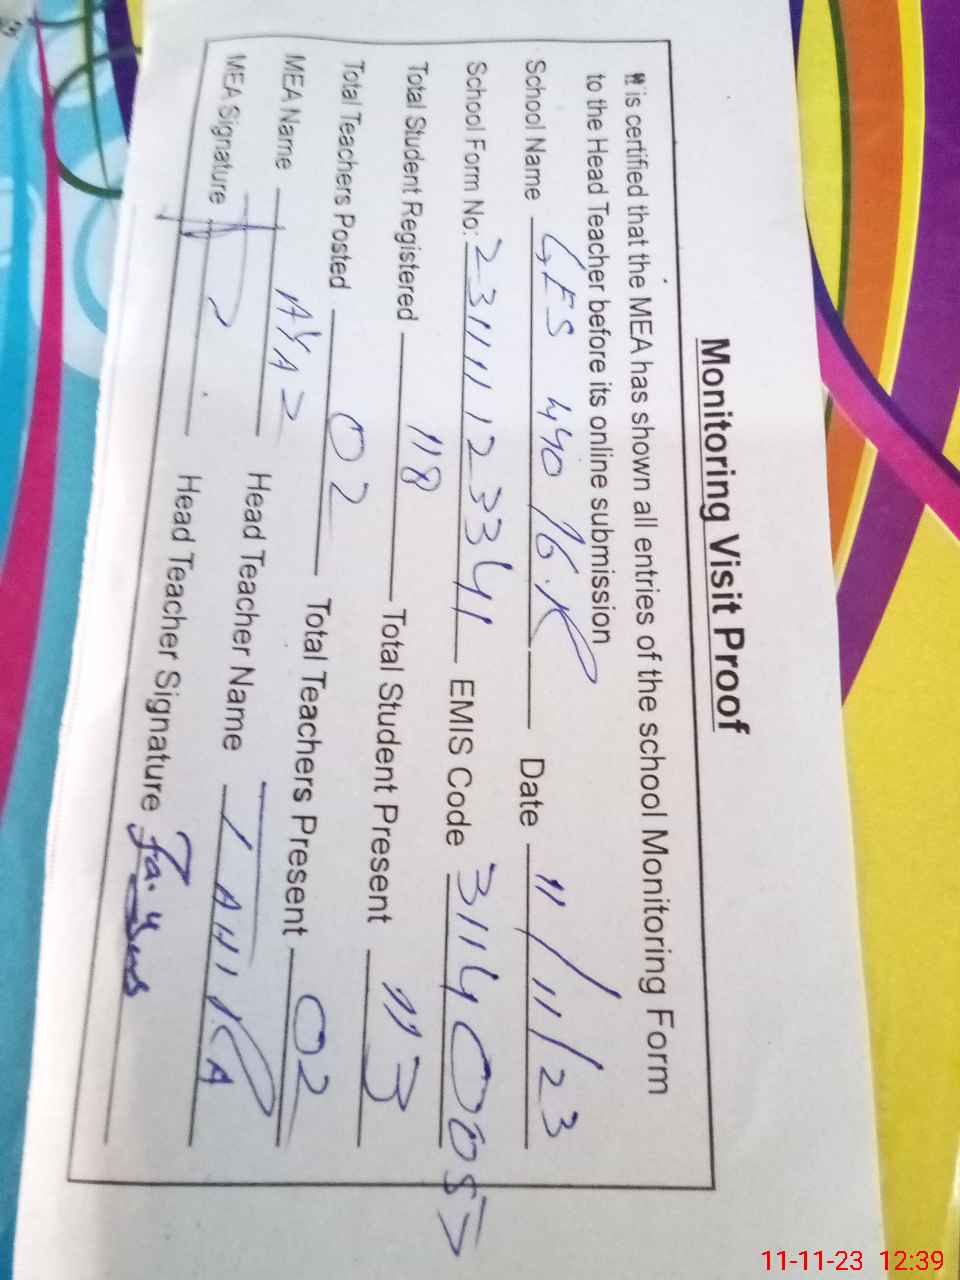 Monitoring Visit Proof
It is certified that the MEA has shown all entries of the school Monitoring Form
to the Head Teacher before its online submission
School Name GES 440 G.R Date 11/11/23
School Form No: 231111123341 EMIS Code 31140057
Total Student Registered 118 Total Student Present 113
Total Teachers Posted 02 Total Teachers Present 02
MEA Name AYAZ Head Teacher Name TAHIRA
MEA Signature Head Teacher Signature
11-11-23 12:39